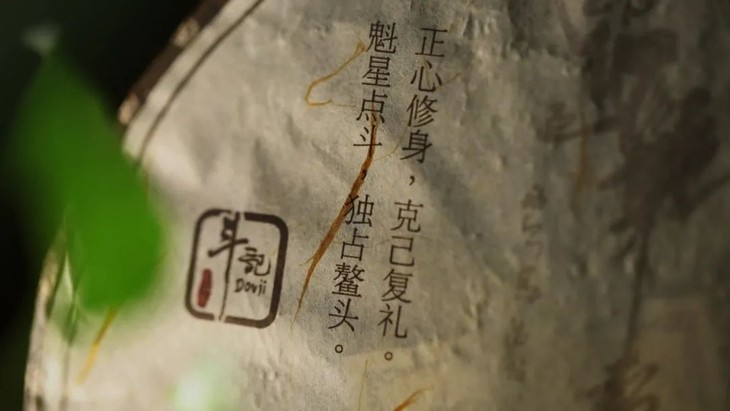 正心修身，克己复礼。
魁星点斗，独占鳌头。
斗記
Douji